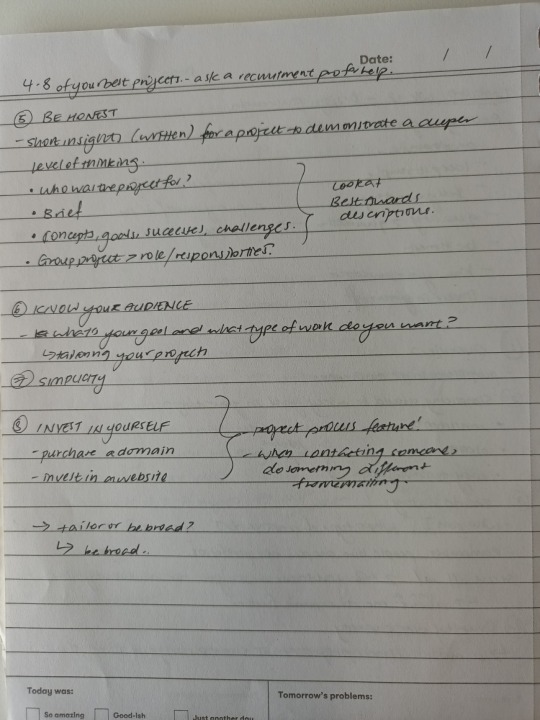 Date: / /
4-8 of your best projects.. - ask a recruitment pro for help.
⑤ BE HONEST
- short insights (written) for a project to demonstrate a deeper
level of thinking.
• who was the project for?
• Brief
• concepts, goals, successes, challenges.
• Group project > role/responsibilities?
Look at
Best Awards
descriptions.
⑥ KNOW YOUR AUDIENCE
- what's your goal and what type of work do you want?
↳ tailoring your projects
⑦ SIMPLICITY
⑧ INVEST IN YOURSELF
- purchase a domain
- invest in a website
- project process feature!
- when contacting someone,
do something different
from emailing.
→ tailor or be broad?
↳ be broad..
Today was:
So amazing
Good-ish
Just another day
Tomorrow's problems: